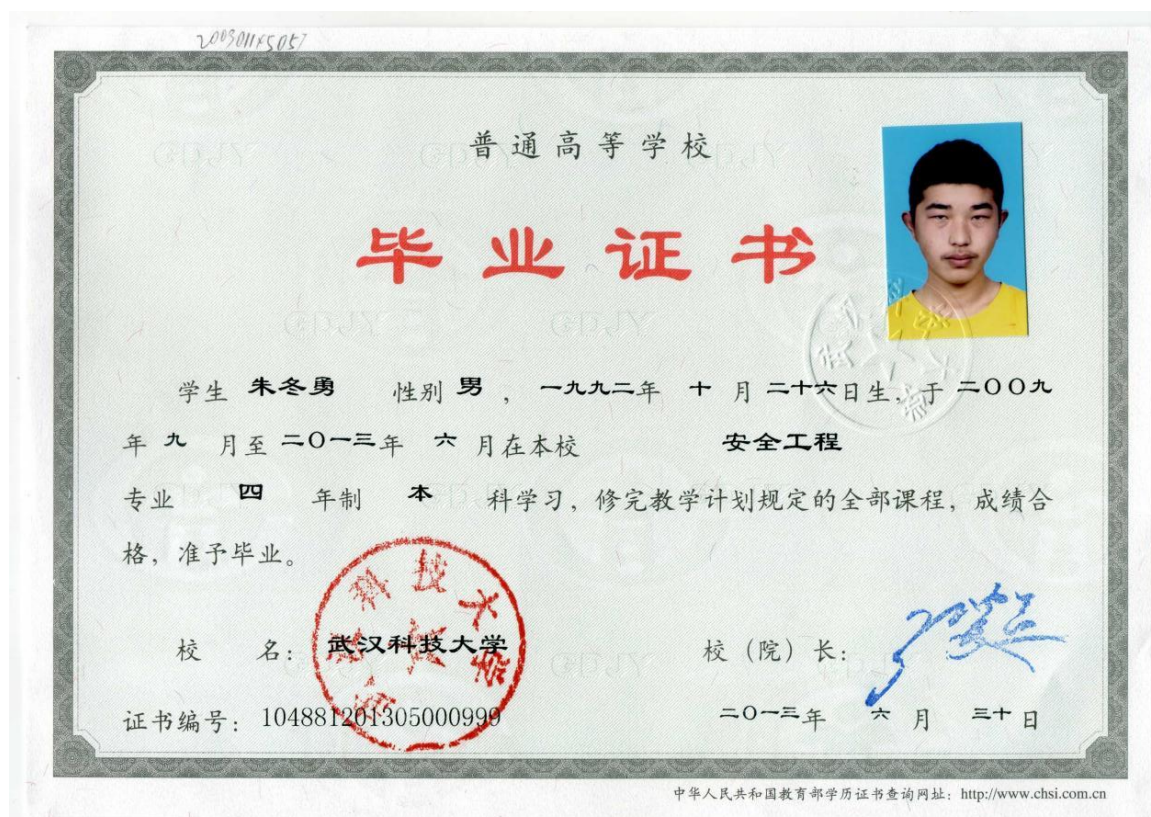 普通高等学校
毕业证书
学生 朱冬勇 性别 男 ，一九九二年 十 月 二十六日生，于 二〇〇九
年 九 月至 二〇一三年 六 月在本校 安全工程
专业 四 年制 本 科学习，修完教学计划规定的全部课程，成绩合
格，准予毕业。
校 名：武汉科技大学 校（院）长：
证书编号：104881201305000999 二〇一三年 六 月 三十日
中华人民共和国教育部学历证书查询网址：http://www.chsi.com.cn